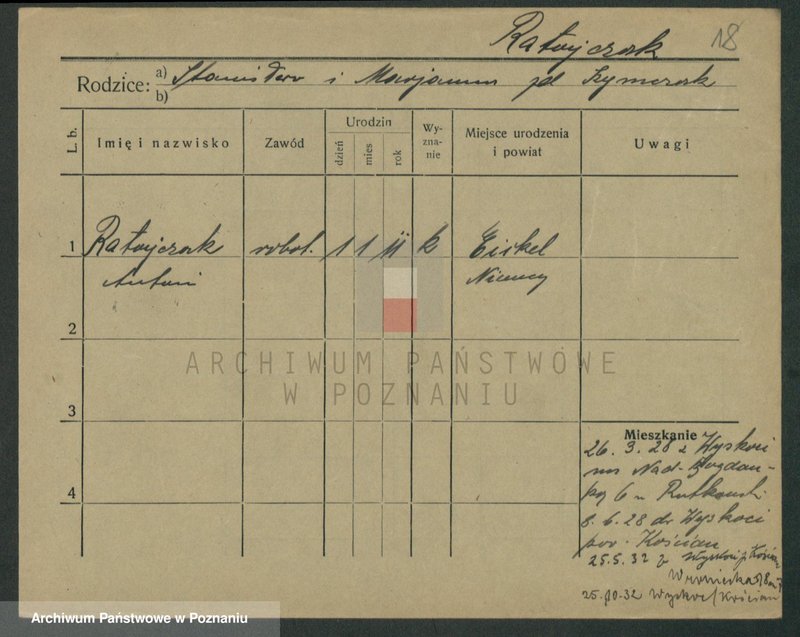 Ratajczak 18
Rodzice: a) Stanisław i Marjanna zd Szymczak
b)
L. b. Imię i nazwisko Zawód Urodzin dzień mies rok Wyznanie Miejsce urodzenia i powiat Uwagi
1 Ratajczak robot. 1 1 11 k Eickel
Antoni Niemcy
2
ARCHIWUM PAŃSTWOWE
W POZNANIU
3
Mieszkanie
26. 3. 28 z Wyskoci
na Nad-Bogdan-
ką 6 u Rutkowski
8. 6. 28 do Wyskoci
4
pow. Kościan
25.5. 32 z Wyskoci p. Kościan
Wroniecka
25.10-32 Wyskoc/Kościan
Archiwum Państwowe w Poznaniu